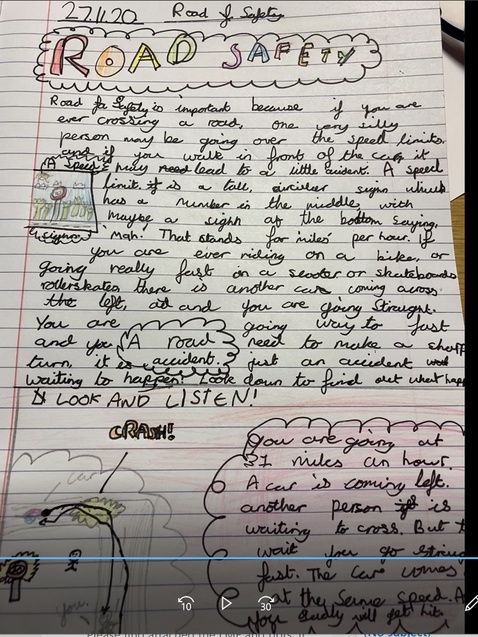 27.11.20 Road Safety
ROAD SAFETY
Road Safety is important because if you are
ever crossing a road, one very silly
person may be going over the speed limits.
and if you walk in front of the car it
may lead to a little accident. A speed
limit is a tall, circular sign which
has a number in the middle, with
maybe a sighn at the bottom saying,
'Mqh'. That stands for 'miles' per hour. If
A speed
sighn
you are ever riding on a bike, or
going really fast on a scooter or skateboards
rollerskates, there is another car coming across
the left, and you are going straught.
You are going way to fast
and you need to make a sharp
turn, it is just an accident
waiting to happen! Look down to find out what happ
A road
accident.
LOOK AND LISTEN!
CRASH!
car
you
You are going at
31 miles an hour.
A car is coming left.
another person is
waiting to cross. But
wait you go straug
fast. The car comes
at the same speed. A
you will get hit.
10
30